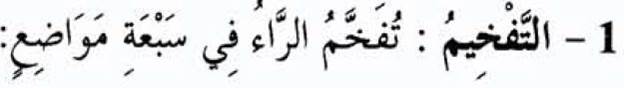 1 – التَّفْخِيمُ : تُفَخَّمُ الرَّاءُ فِي سَبْعَةِ مَوَاضِعٍ: